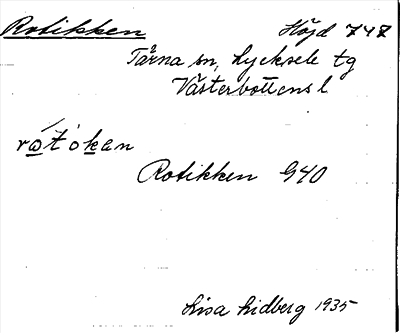 Rotikken Höjd 747
Tärna sn, Lycksele tg
Västerbottens l
Rotikken G40
Lisa Lidberg 1935